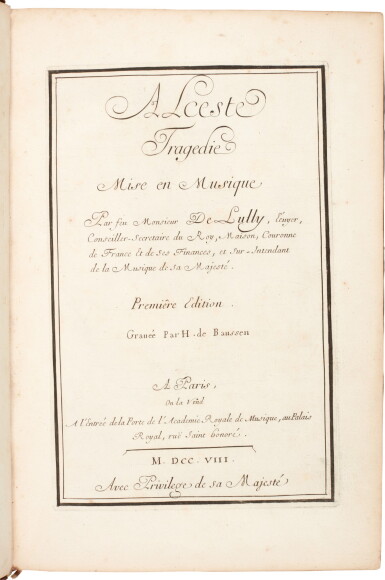 ALceste
Tragedie
Mise en Musique
Par feu Monsieur De Lully, Ecuyer,
Conseiller-Secretaire du Roy, Maison, Couronne
de France et de ses Finances, et Sur-Intendant
de la Musique de sa Majesté.
Premiére Edition.
Gravée Par H. de Baussen
A Paris,
On la Vend
A l'entrée de la Porte de l'Academie Royale de Musique, au Palais
Royal, ruë Saint honoré.
M. DCC. VIII.
Avec Privilege de sa Majesté